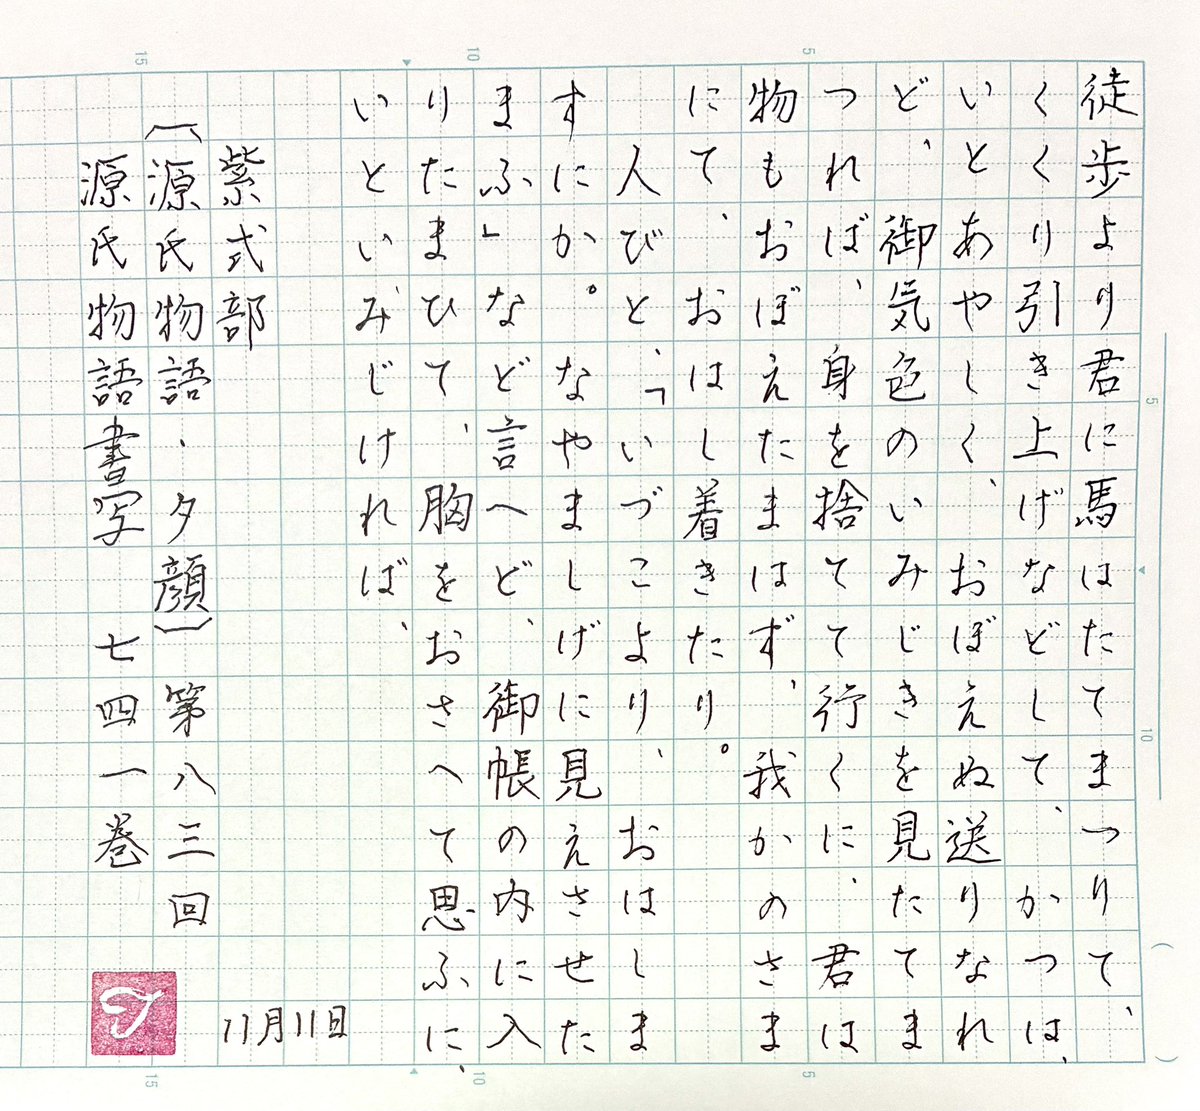 徒歩より君に馬はたてまつりて、
くくり引き上げなどして、かつは、
いとあやしく、おぼえぬ送りなれ
ど、御気色のいみじきを見たてま
つれば、身を捨てて行くに、君は
物もおぼえたまはず、我かのさま
にて、おはし着きたり。
人びと、「いづこより、おはしま
すにか。なやましげに見えさせた
まふ」など言へど、御帳の内に入
りたまひて、胸をおさへて思ふに、
いといみじければ、
紫式部
(源氏物語・夕顔)第八三回
源氏物語書写 七四一巻
11月11日
5
10
15
5
10
5
10
15